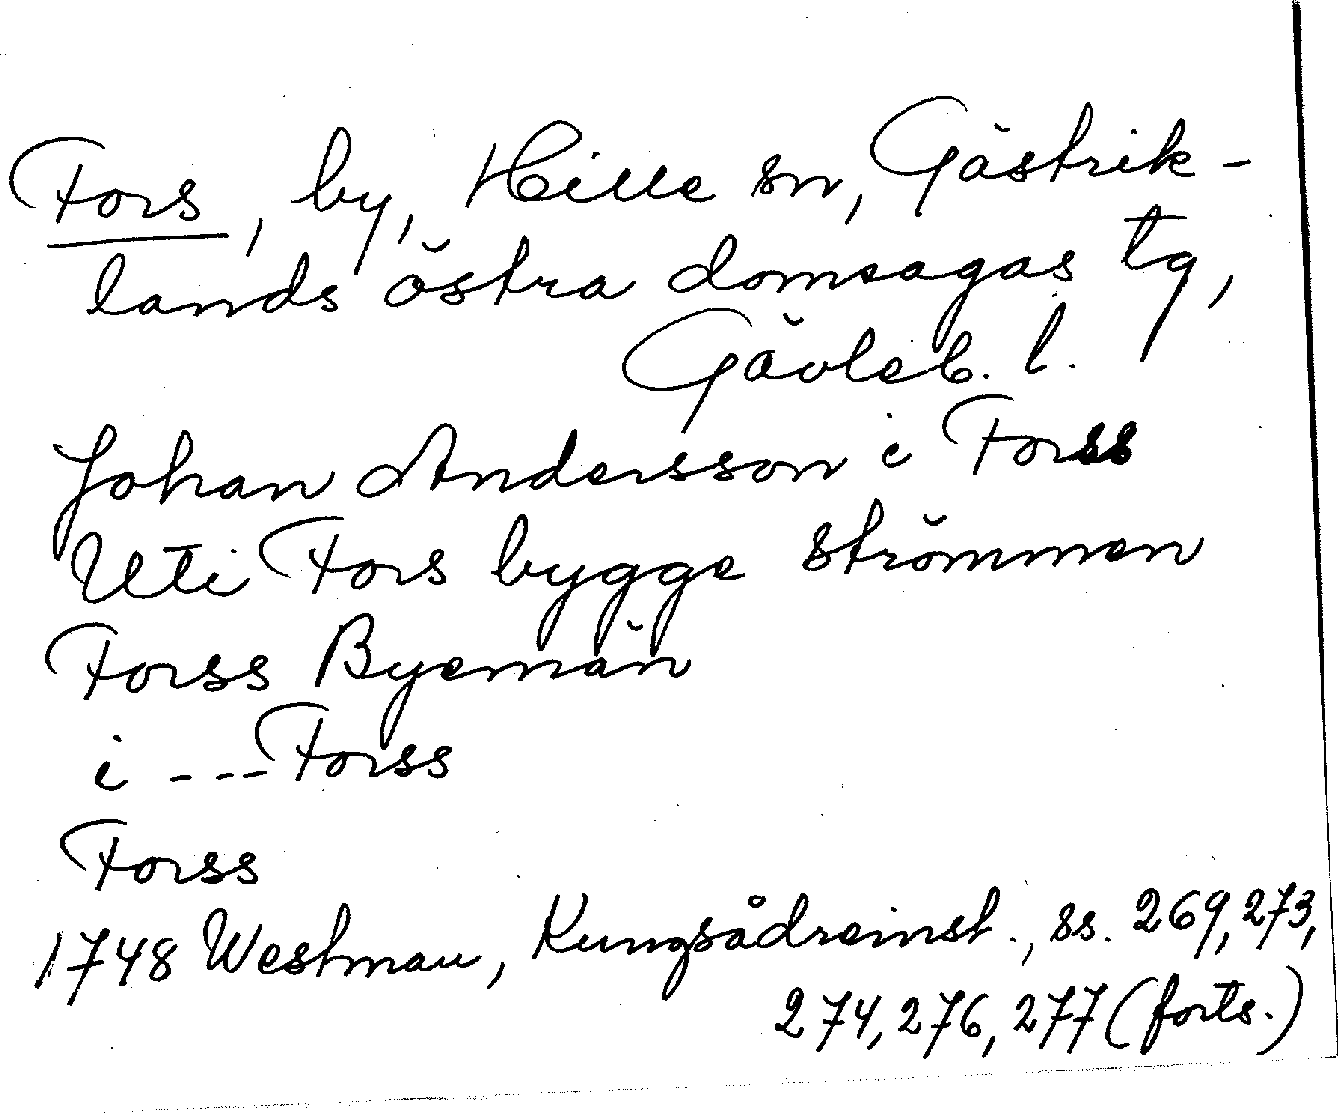 Fors, by, Hille sn, Gästrik-
lands östra domsagas tg,
Gävleb. l.
Johan Andersson i Forss
Uti Fors bygge strömmen
Forss Byemän
i ---Forss
Forss
1748 Westman, Kungsådreinst., ss. 269, 273,
274, 276, 277 (forts.)